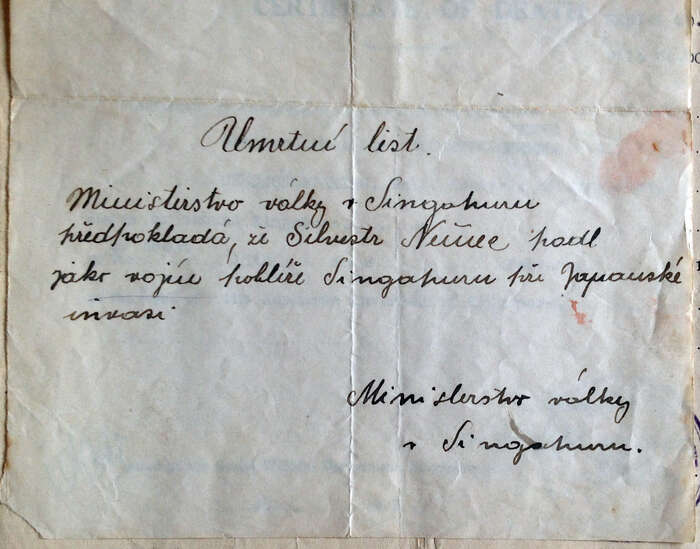 CERTIFICATE OF DEATH
Úmrtní list.
Ministerstvo války v Singapuru
předpokládá, že Silvestr Němec padl
jako vojín poblíže Singapuru při Japanské
invasi
Ministerstvo války
v Singapuru.